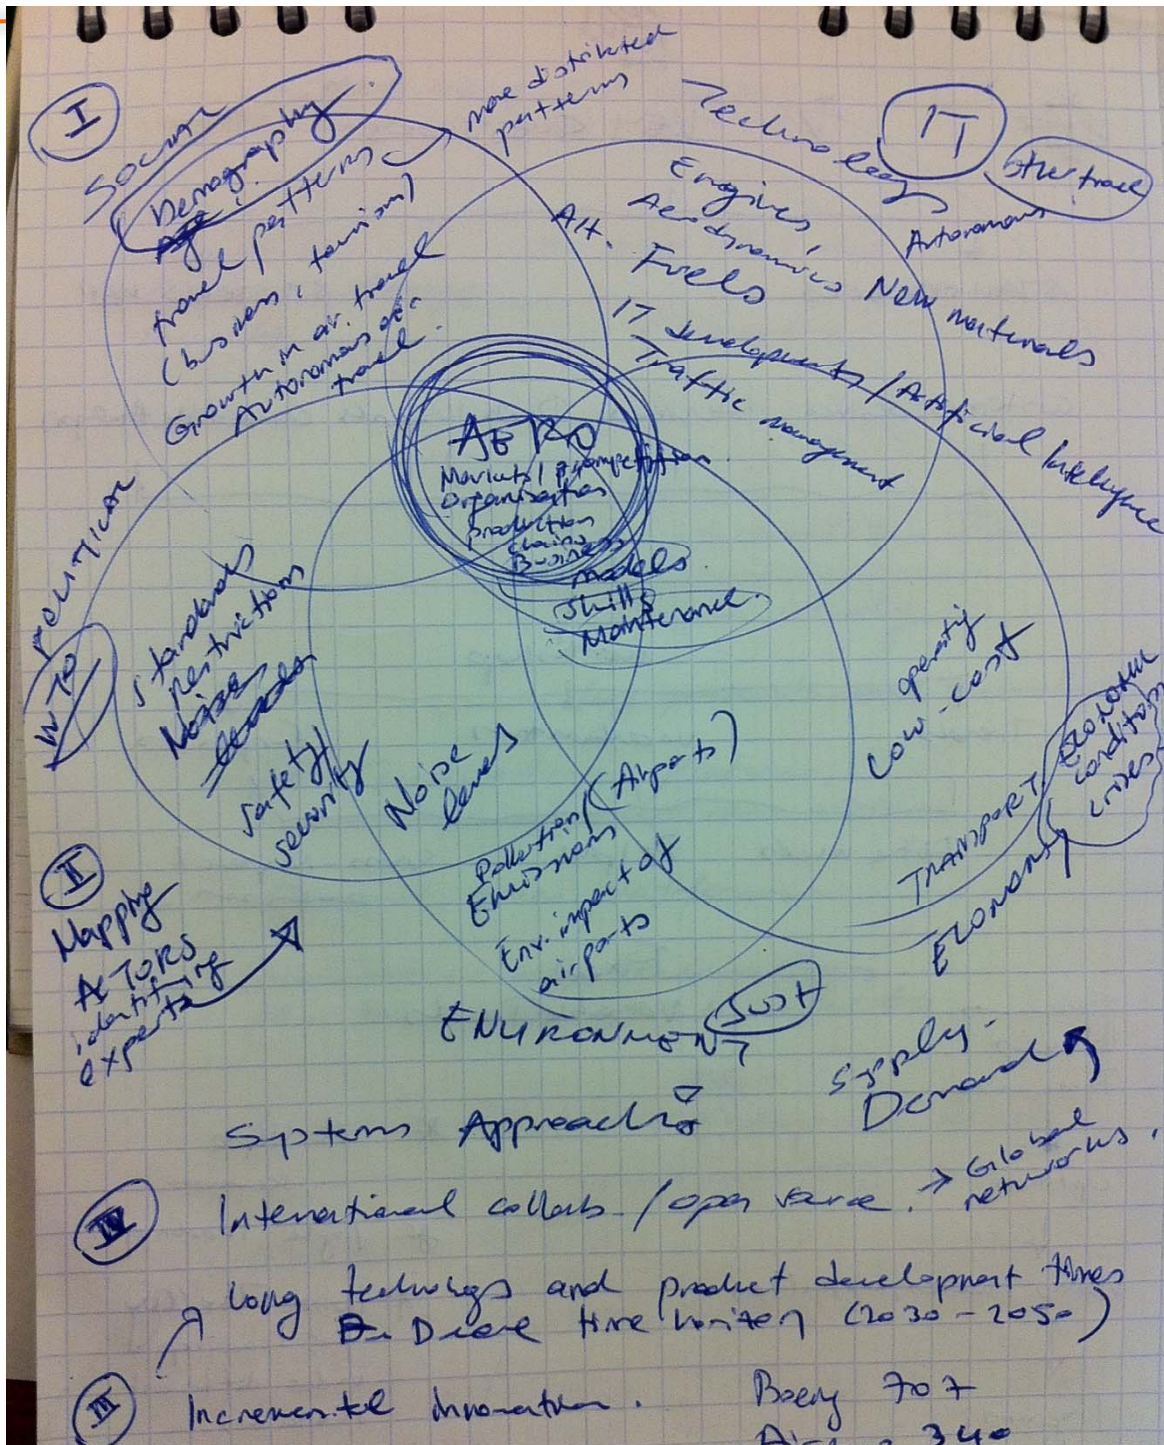 I
SOCIAL
Demography
Age
travel patterns
(business, tourism)
Growth in air travel
Autonomous air
travel.
more distributed
patterns
Technology
IT
other trave
Autonomous
Engines,
Aerodynamics
Alt. Fuels
New materials
IT developments / Artificial Intelligence
Traffic management
AERO
Markets / competition
organisation
production
chains
Business
models
Skills
Maintenance.
POLITICAL
WTO
standards
restrictions
Noise
levels
safety/
security
Noise
levels
Pollution/
Emissions
(Airports)
Env. impact of
airports
operating
Low-cost
TRANSPORT
ECONOMY
ECONOMIC
conditions
crises
II
Mapping
ACTORS
identifying
experts
ENVIRONMENT
SUST
Supply-
Demand
Systems Approach
IV
International collab. / open source. → Global
networks.
Long technology and product development times
Drove time horizon (2030-2050)
III
Incremental innovation.
Boeing 707
340